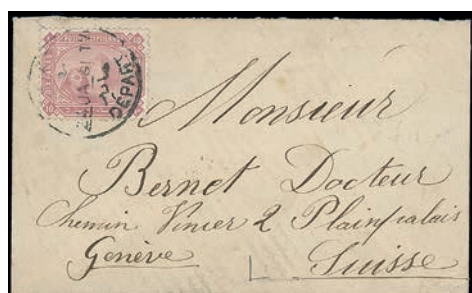 DEPART
Monsieur
Bernet Docteur
Chemin Vinier 2 Plainpalais
Genève
Suisse